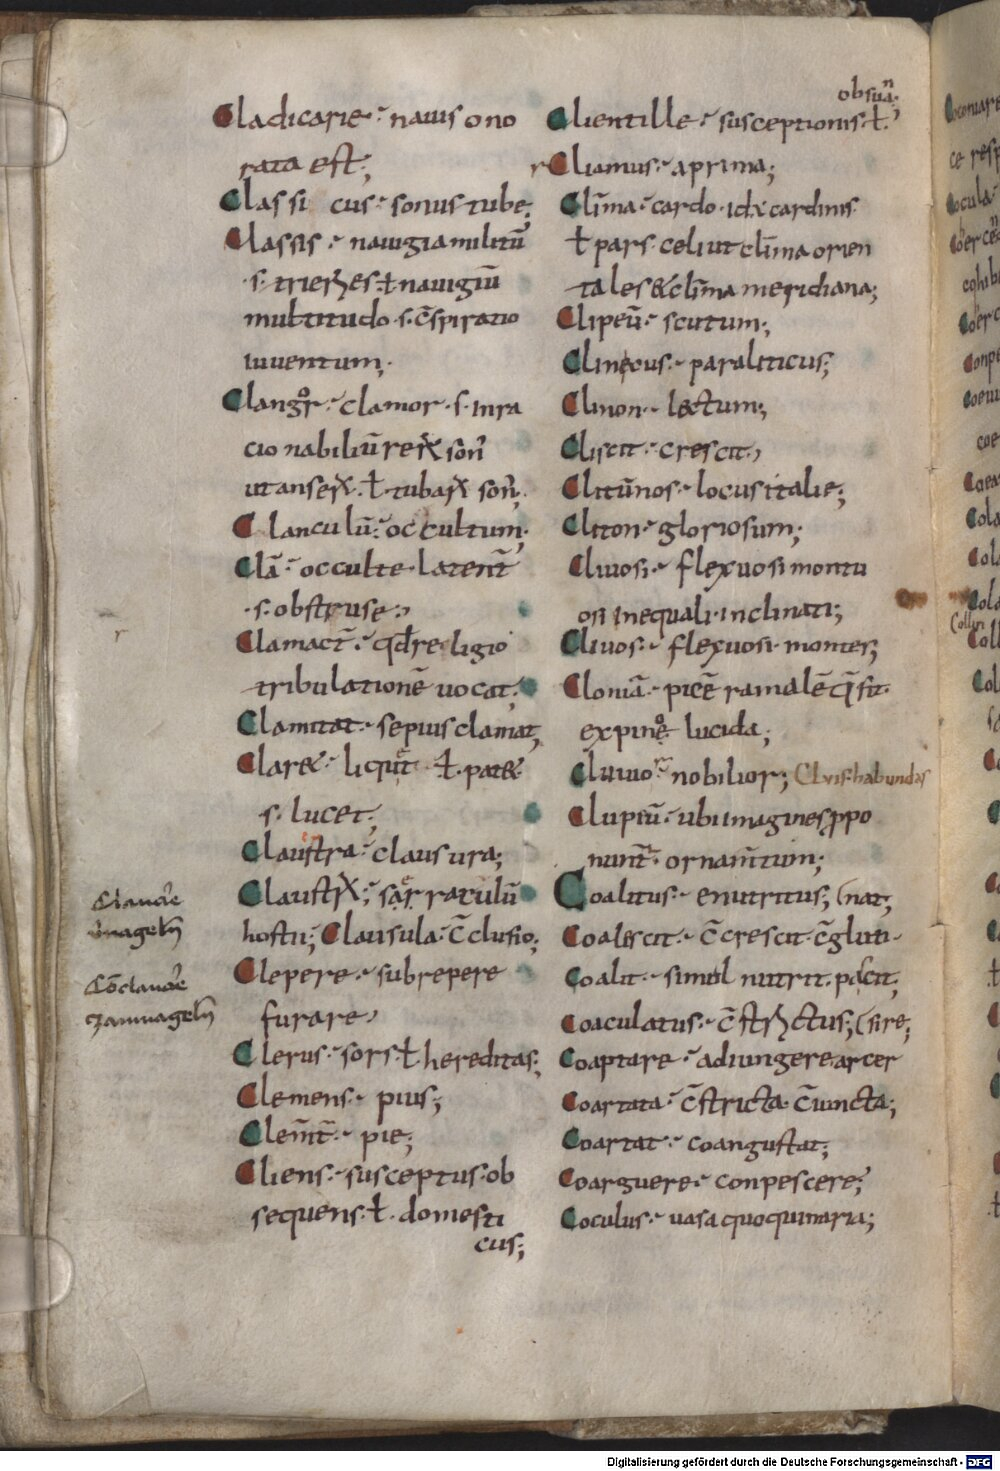 Cladicarie · nauis ono
rata est;
Classi cus · sonus tubę;
Classis · nauigia militū
·s· trieres · ł nauigiū
multitudo ·s· c̄spiratio
iuuentum;
Clangor · clamor ·s· inra
cio nabiliū rerꝝ son̄
ut anserꝝ · ł · tubarꝝ son̄;
Clanculū · occultum;
Clā · occulte · latent̄
·s· obstruse;
Clamact̄ · qđ religio
tribulationē uocat;
Clamitat · sepius clamat;
Claret · liquet ł · patet
·s· lucet;
Claustra · clausura;
Claustrꝝ · sarratulū
hostii; Clausula · c̄clusio;
Clepere · subrepere
furare;
Clerus · sors ł hereditas;
Clemens · pius;
Clem̄t̄ · pie;
Cliens · susceptus · ob
sequens · ł · domesti
cus;
obsuān·
Clientille · susceptionis · ł ·
r Cliamus · aprima;
Clīma · cardo · id ÷ cardinis
ł pars · celi ut clīma orien
tales & clīma meridiana;
Clipeū · scutum;
Clinicus · paraliticus;
Clinon · lectum;
Cliscit · crescit;
Clitūnos · locus italie;
Cliton · gloriosum;
Cliuosi · flexuosi montu
osi inequali · inclinati;
Cliuos · flexuosi · montes;
Cloniā · picē ramalē q̄ fit
expinę lucida;
Cluuior · nobilior; Cluis · habundas
Clupeū · ubi imagines ꝓpo
nunt̄ · ornam̄tum;
Coalitus · enutritus; (nat;
Coalescit · c̄crescit · c̄gluti
Coalit · simul nutrit · pascit;
Coaculatus · c̄strictus; (sire;
Coaptare · adiungere · arcer
Coartata · c̄stricta · c̄iuncta;
Coartat · coangustat;
Coarguere · conpescere;
Coculus · uasa quoquinaria;
Digitalisierung gefördert durch die Deutsche Forschungsgemeinschaft - DFG